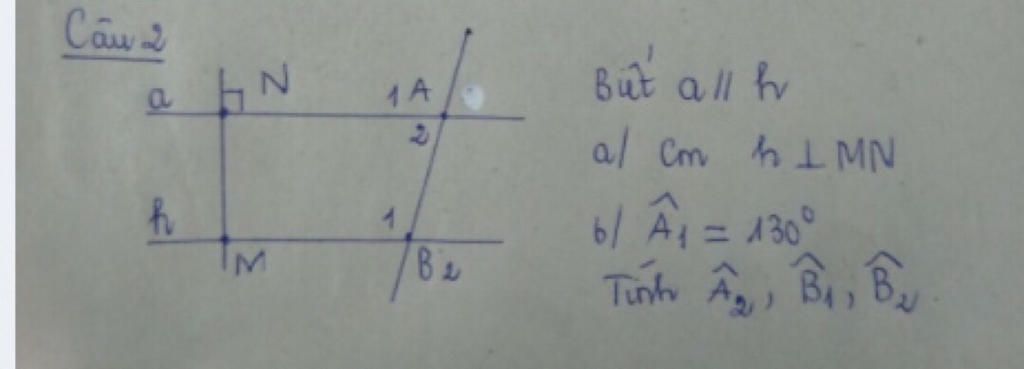 Câu 2
a N 1 A
2
h 1
M B 2
Biết a // h
a/ Cm h ⊥ MN
b/ Â₁ = 130°
Tính Â₂, B̂₁, B̂₂